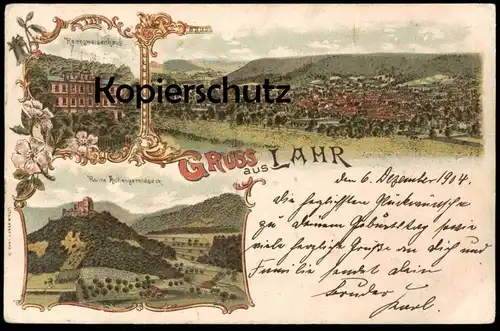 Reichswaisenhaus
Kopierschutz
GRUSS
aus LAHR
Ruine Hohengeroldseck
den 6. Dezember 1904.
Die herzlichsten Glückwünsche
zu Deinem Geburtstag sowie
viele herzliche Grüße an Dich und
Familie sendet Dein
Bruder
Karl.